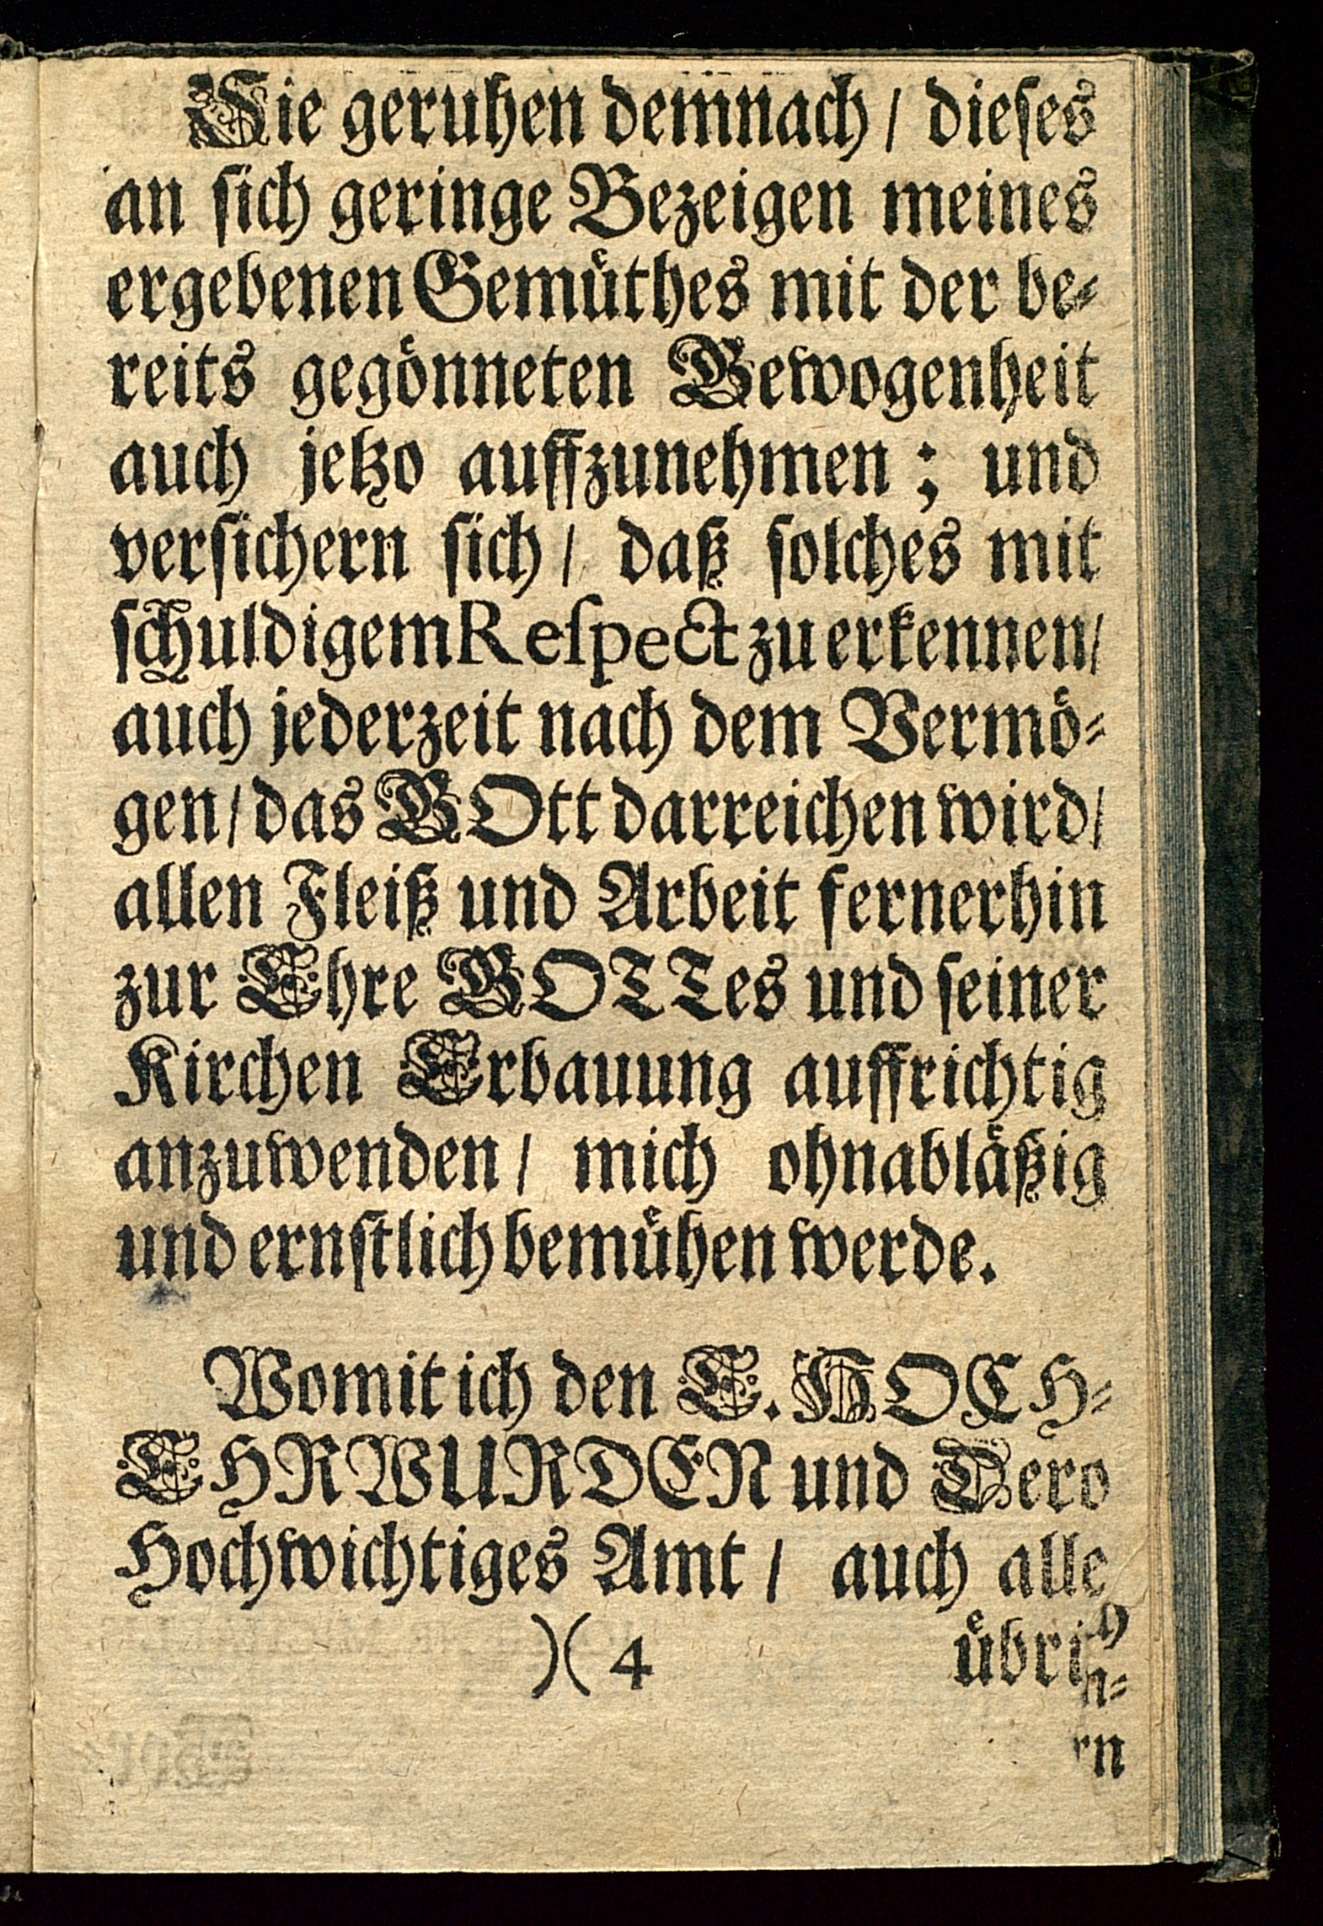 Sie geruhen demnach / dieses
an sich geringe Bezeigen meines
ergebenen Gemuͤthes mit der be⸗
reits gegoͤnneten Gewogenheit
auch jetzo auffzunehmen ; und
versichern sich / daß solches mit
schuldigem Respect zu erkennen /
auch jederzeit nach dem Vermoͤ⸗
gen / das GOtt darreichen wird /
allen Fleiß und Arbeit fernerhin
zur Ehre GOTTes und seiner
Kirchen Erbauung auffrichtig
anzuwenden / mich ohnablaͤßig
und ernstlich bemuͤhen werde.
Womit ich den E. HOCH⸗
EHRWURDEN und Dero
Hochwichtiges Amt / auch alle
)( 4 uͤbri